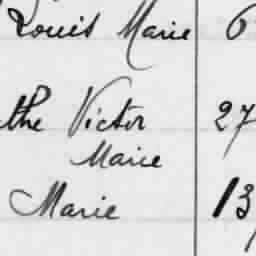 Louis Marie 6
the Victor 27
Marie
Marie 13